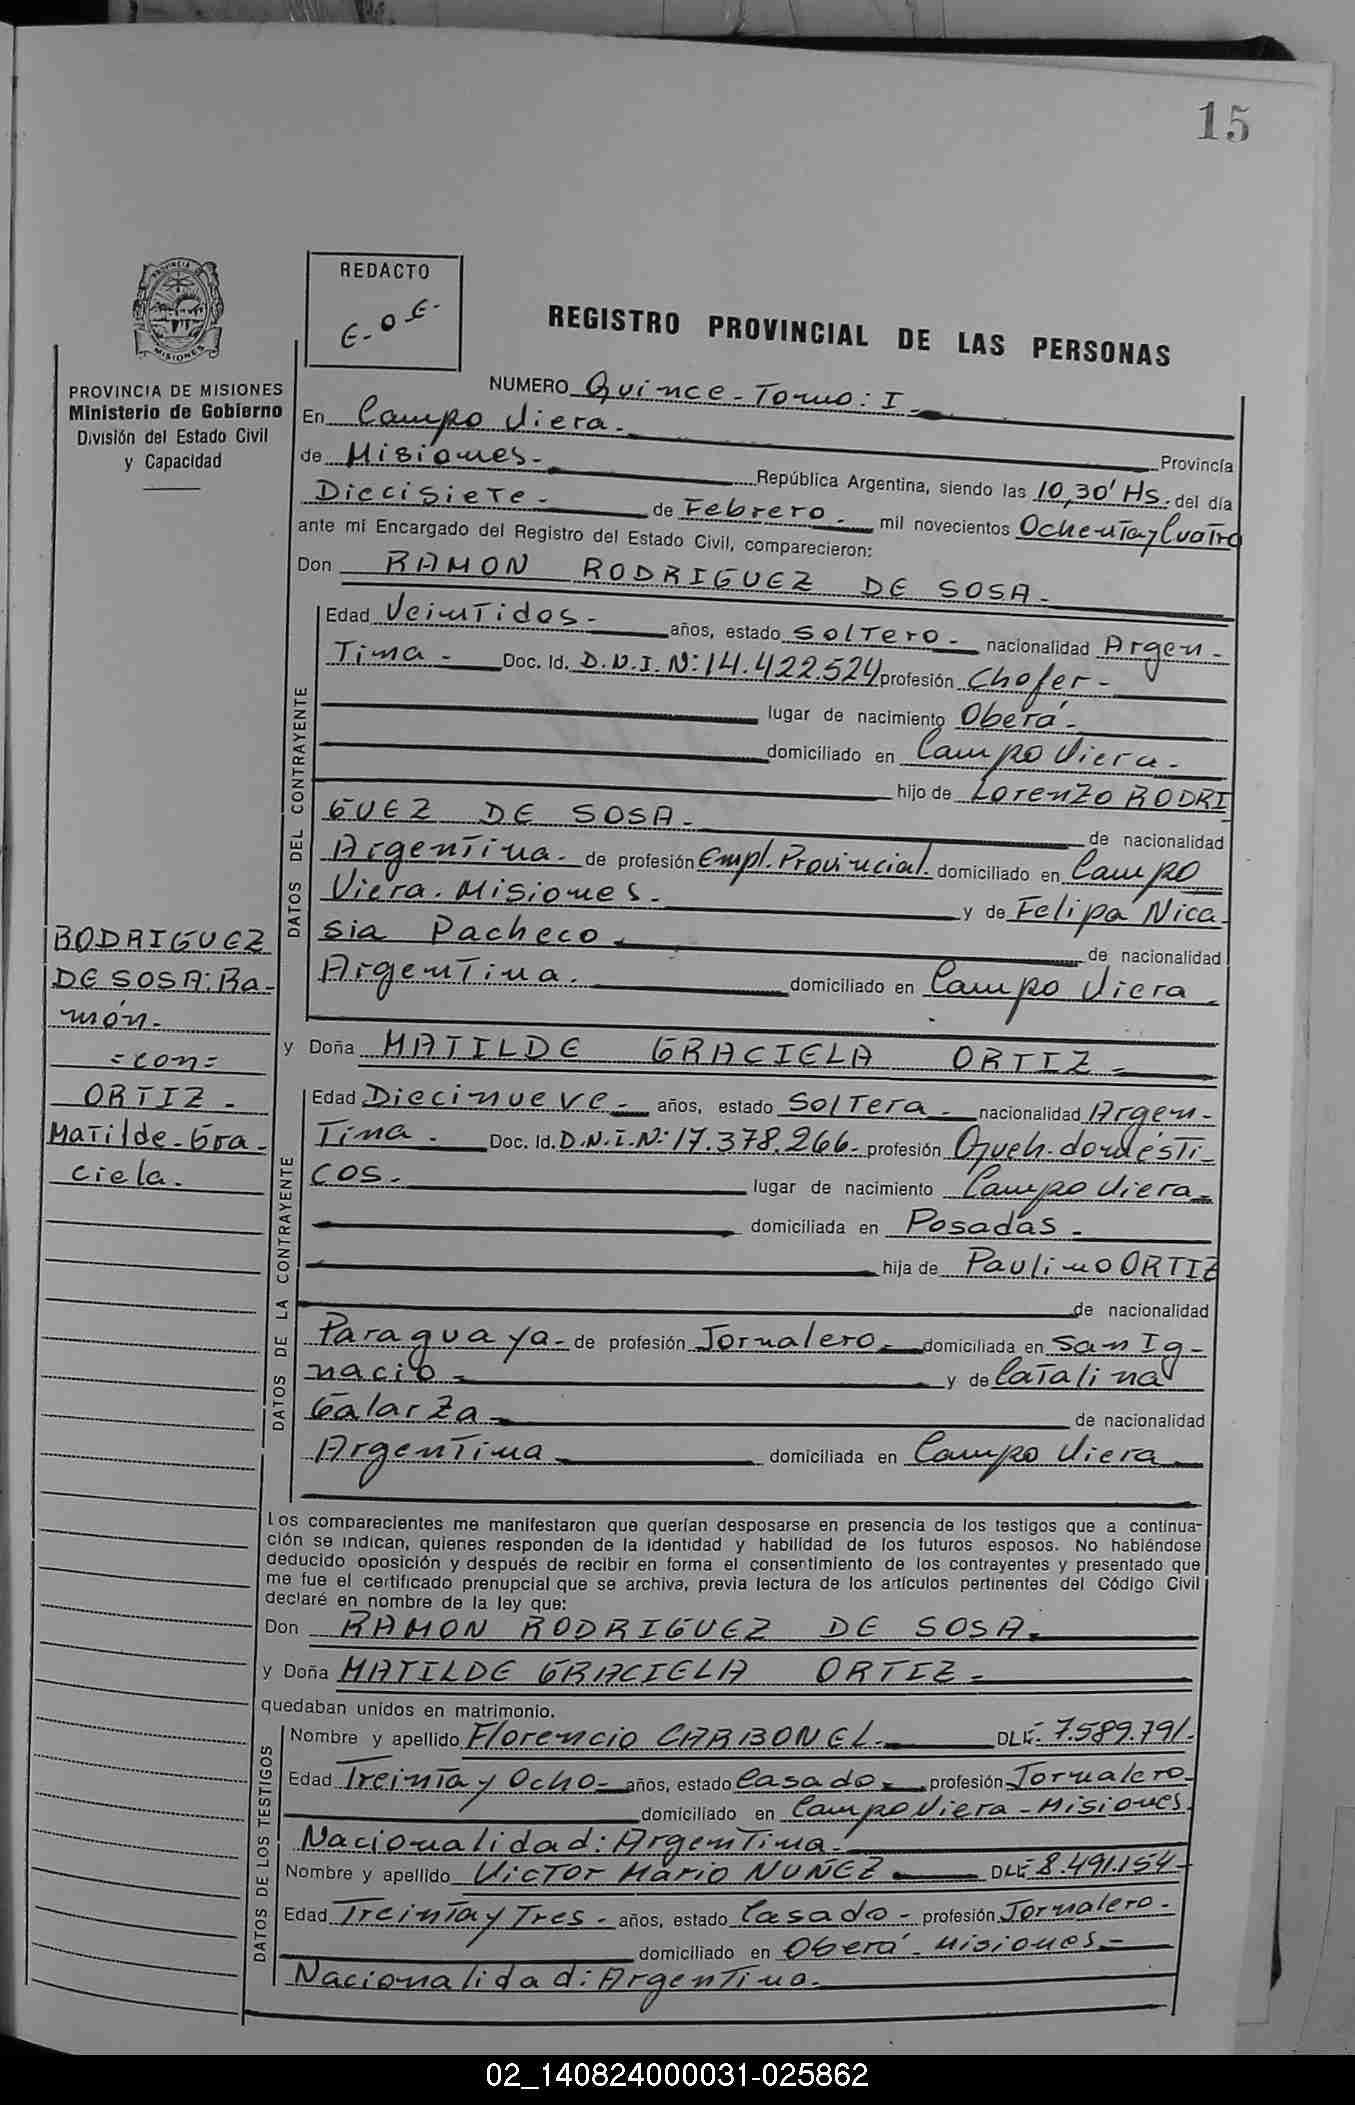 15
REDACTO
E-O-E-
REGISTRO PROVINCIAL DE LAS PERSONAS
PROVINCIA DE MISIONES
Ministerio de Gobierno
División del Estado Civil
y Capacidad
NUMERO Quince - Tomo: I
En Campo Viera.
Provincia
de Misiones.- República Argentina, siendo las 10,30' Hs. del día
Diecisiete.- de Febrero.- mil novecientos Ochenta y Cuatro
ante mi Encargado del Registro del Estado Civil, comparecieron:
Don RAMON RODRIGUEZ DE SOSA.-
DATOS DEL CONTRAYENTE
Edad Veintidos.- años, estado Soltero.- nacionalidad Argen-
tina.- Doc. Id. D.N.I. N: 14.422.524 profesión Chofer-
lugar de nacimiento Oberá-
domiciliado en Campo Viera.-
hijo de Lorenzo RODRI
GUEZ DE SOSA.-
de nacionalidad
Argentina.- de profesión Empl. Provincial. domiciliado en Campo
Viera. Misiones.- y de Felipa Nica-
sia Pacheco.-
de nacionalidad
Argentina.- domiciliado en Campo Viera
RODRIGUEZ
DE SOSA: Ra-
món.-
=con=
ORTIZ-
Matilde-Gra-
ciela.-
y Doña MATILDE GRACIELA ORTIZ.-
DATOS DE LA CONTRAYENTE
Edad Diecinueve.- años, estado Soltera.- nacionalidad Argen-
tina.- Doc. Id. D.N.I. N: 17.378.266.- profesión Queh. domésti-
cos.- lugar de nacimiento Campo Viera.-
domiciliada en Posadas.-
hija de Paulino ORTIZ
de nacionalidad
Paraguaya- de profesión Jornalero.- domiciliada en San Ig-
nacio.- y de Catalina
Galarza.- de nacionalidad
Argentina domiciliada en Campo Viera
Los comparecientes me manifestaron que querían desposarse en presencia de los testigos que a continua-
ción se indican, quienes responden de la identidad y habilidad de los futuros esposos. No habiéndose
deducido oposición y después de recibir en forma el consentimiento de los contrayentes y presentado que
me fue el certificado prenupcial que se archiva, previa lectura de los artículos pertinentes del Código Civil
declaré en nombre de la ley que:
Don RAMON RODRIGUEZ DE SOSA.-
y Doña MATILDE GRACIELA ORTIZ.-
quedaban unidos en matrimonio.
DATOS DE LOS TESTIGOS
Nombre y apellido Florencio CARBONEL.- DLE.- 7.589.791.-
Edad Treinta y Ocho- años, estado Casado.- profesión Jornalero-
domiciliado en Campo Viera - Misiones.
Nacionalidad: Argentina.-
Nombre y apellido Victor Mario NUÑEZ DLE 8.491.154-
Edad Treinta y Tres.- años, estado Casado- profesión Jornalero-
domiciliado en Oberá - Misiones-
Nacionalidad: Argentina.-
02_140824000031-025862